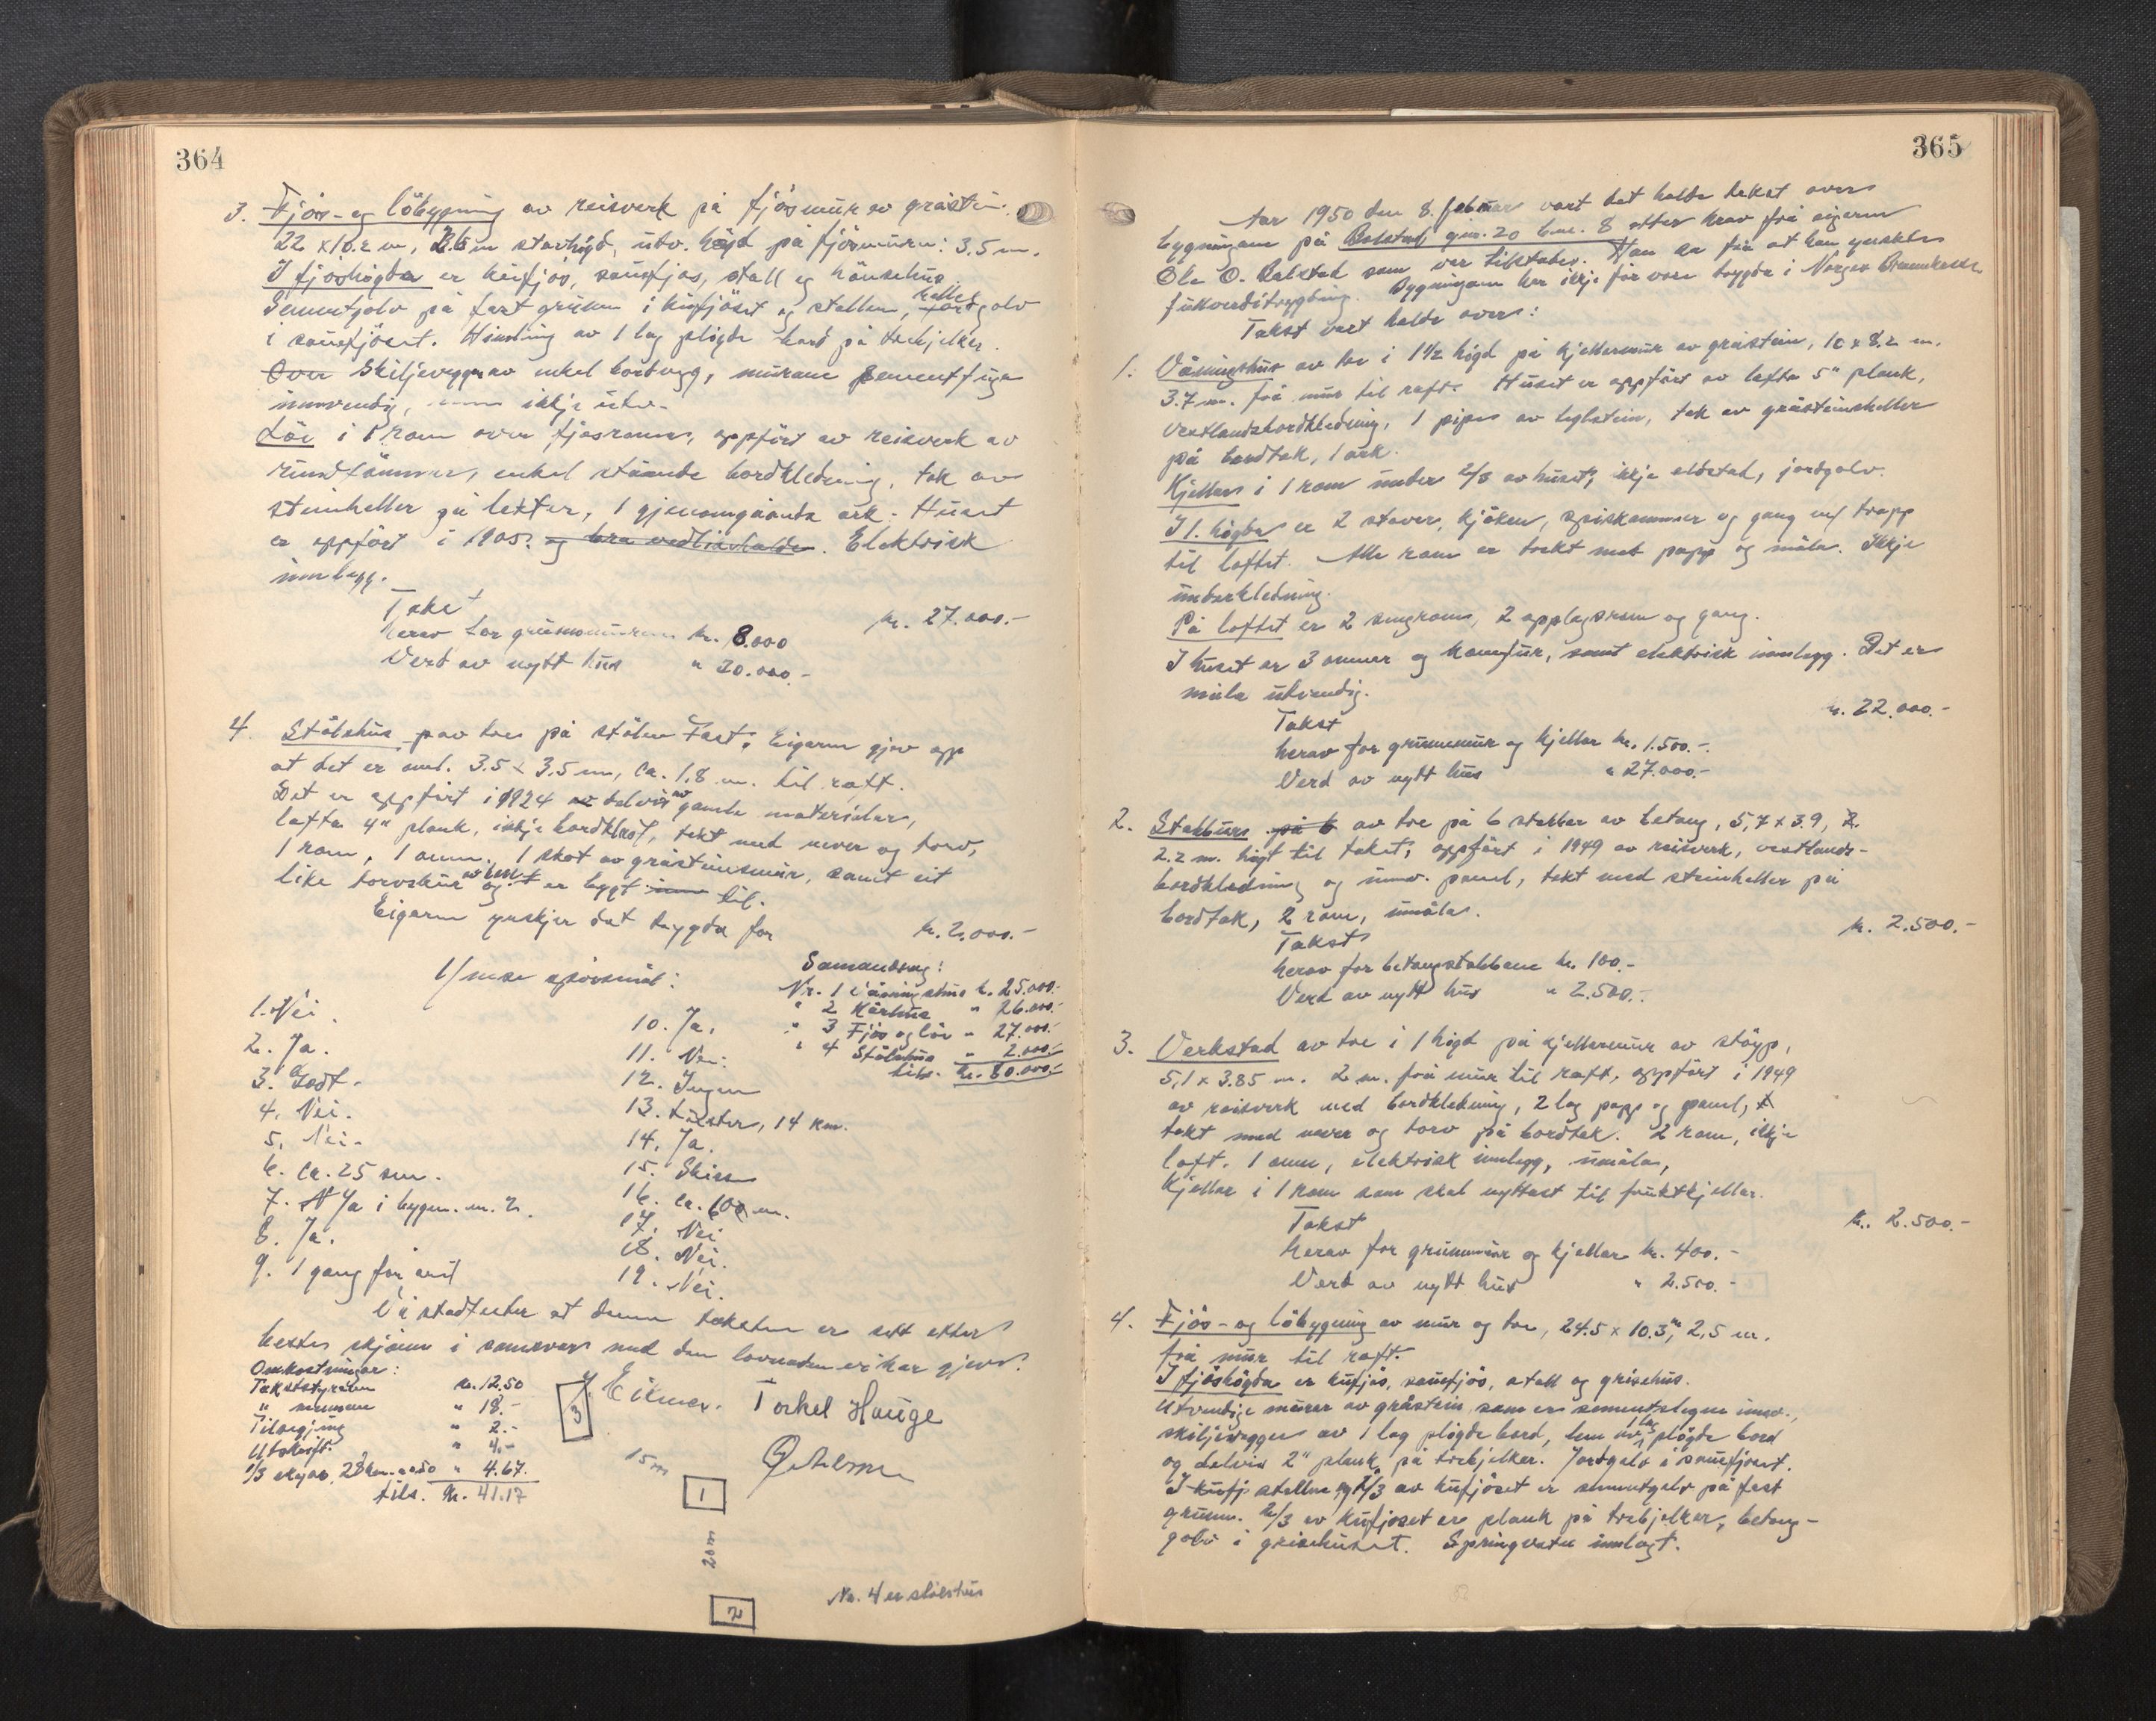 364
3. Fjös- og löbygning av reisverk på fjösmur av gråstein.
22 x 10.2 m, 2.6 m stavhögd, utv. högd på fjösmuren: 3.5 m.
I fjöshögda er kufjös, sauefjös, stall og hönsehus.
Sementgolv på fast grunn i kufjöset og stallen, hellegolv
i sauefjöset. Himling av 1 lag plögde bord på trebjelker.
Over Skiljevegger av enkel bordvegg, murane sementfuga
innvendig, men ikkje utv.
Löe i 1 rom over fjösromma, oppfört av reisverk av
rundtömmer, enkel ståande bordkledning, tak av
steinheller på lekter, 1 gjenomgåande ark. Huset
er oppfört i 1905. og bra vedlikehalde. Elektrisk
innlegg.
Takst kr. 27.000.-
herav for grunnmuren kr. 8.000
Verd av nytt hus " 30.000.-
4. Stölshus av tre på stölen Fast. Eigaren gjev opp
at det er oml. 3.5 x 3.5 m, ca. 1.8 m. til raft.
Det er oppfört i 1924 av delvis av gamle materialer,
lafta 4" plank, ikkje bordkledt, tekt med never og torv,
1 rom, 1 omn, 1 skot av gråsteinsmur, samt eit
like torvskur av bord og er bygt inn til.
Eigaren ynskjer det trygda for kr. 2.000.-
Ymse spörsmål:
Samandrag:
Nr. 1 Våningshus kr. 25.000.-
" 2 Kårhus " 26.000.-
" 3 Fjös og löe " 27.000.-
" 4 Stölshus " 2.000.-
tils. kr. 80.000.-
1. Nei.
2. Ja.
3. Godt.
4. Nei.
5. Nei.
6. ca. 25 cm.
7. Ja i bygn. nr. 2.
8. Ja.
9. 1 gang for året
10. Ja.
11. Nei.
12. Ingen
13. Luster, 14 km.
14. Ja.
15. Skisse
16. ca. 100 m.
17. Nei
18. Nei.
19. Nei.
Vi stadfester at denne taksten er sett etter
beste skjönn i samsvar med den lovnaden vi har gjeve.
Omkostningar:
Takststyraren kr. 12.50
" mennene " 18.-
Tilsegjing " 2.-
Utskrift " 4.-
1/3 skyss 28 km. a 50 " 4.67.
tils. kr. 41.17
Torkel Hauge
3
15 m
1
20 m
2
Nr. 4 er stölshus
365
År 1950 den 8. februar vart det halde takst over
bygningane på Bolstad gnr. 20 bnr. 8 etter krav frå eigaren
Ole O. Bolstad som var tilstades. Han sa frå at han ynskte
fullverditrygding. Bygningane har ikkje för vore trygda i Norges Brannkasse.
Takst vart halde over:
1. Våningshus av tre i 1½ högd på kjellarmur av gråstein, 10 x 8.2 m.
3.7 m. frå mur til raft. Huset er oppfört av lafta 5" plank,
vestlandsbordkledning, 1 pipe av teglstein, tak av gråsteinsheller
på bordtak, 1 ark.
Kjellar i 1 rom under 2/3 av huset, ikkje eldstad, jordgolv.
I 1. högda er 2 stover, kjöken, spiskammer og gang m/ trapp
til loftet. Alle rom er trekt med papp og måla. Ikkje
underkledning.
På loftet er 2 sengrom, 2 opplagsrom og gang.
I huset er 3 omner og komfur, samt elektrisk innlegg. Det er
måla utvendig.
Takst kr. 22.000.-
herav for grunnmur og kjellar kr. 1.500.-
Verd av nytt hus " 27.000.-
2. Stabbur på 6 av tre på 6 stabber av betong, 5,7 x 3.9, 2.
2.2 m. högt til taket, oppfört i 1949 av reisverk, vestlands-
bordkledning og innv. panel, tekt med steinheller på
bordtak, 2 rom, umåla.
Takst kr. 2.500.-
herav for betongstabbene kr. 100.-
Verd av nytt hus " 2.500.-
3. Verkstad av tre i 1 högd på kjellarmur av stöyp,
5,1 x 3.85 m. 2 m. frå mur til raft, oppfört i 1949
av reisverk med bordkledning, 2 lag papp og panel, t
tekt med never og torv på bordtak. 2 rom, ikkje
loft. 1 omn, elektrisk innlegg, umåla,
Kjellar i 1 rom som skal nyttast til fruktkjellar.
Takst kr. 2.500.-
herav for grunnmur og kjellar kr. 400.-
Verd av nytt hus " 2.500.-
4. Fjös- og löbygning av mur og tre, 24.5 x 10.3 m, 2,5 m.
frå mur til raft.
I fjöshögda er kufjös, sauefjös, stall og grisehus.
Utvendige murer av gråstein som er sementslegne innv.,
skiljevegger av 1 lag plögde bord, lem av 1 lag plögde bord
og delvis 2" plank på trebjelker. Jordgolv i sauefjöset.
I kufj stallen og 1/3 av kufjöset er sementgolv på fast
grunn. 2/3 av kufjöset er plank på trebjelker, betong-
golv i grisehuset. Springvatn innlagt.